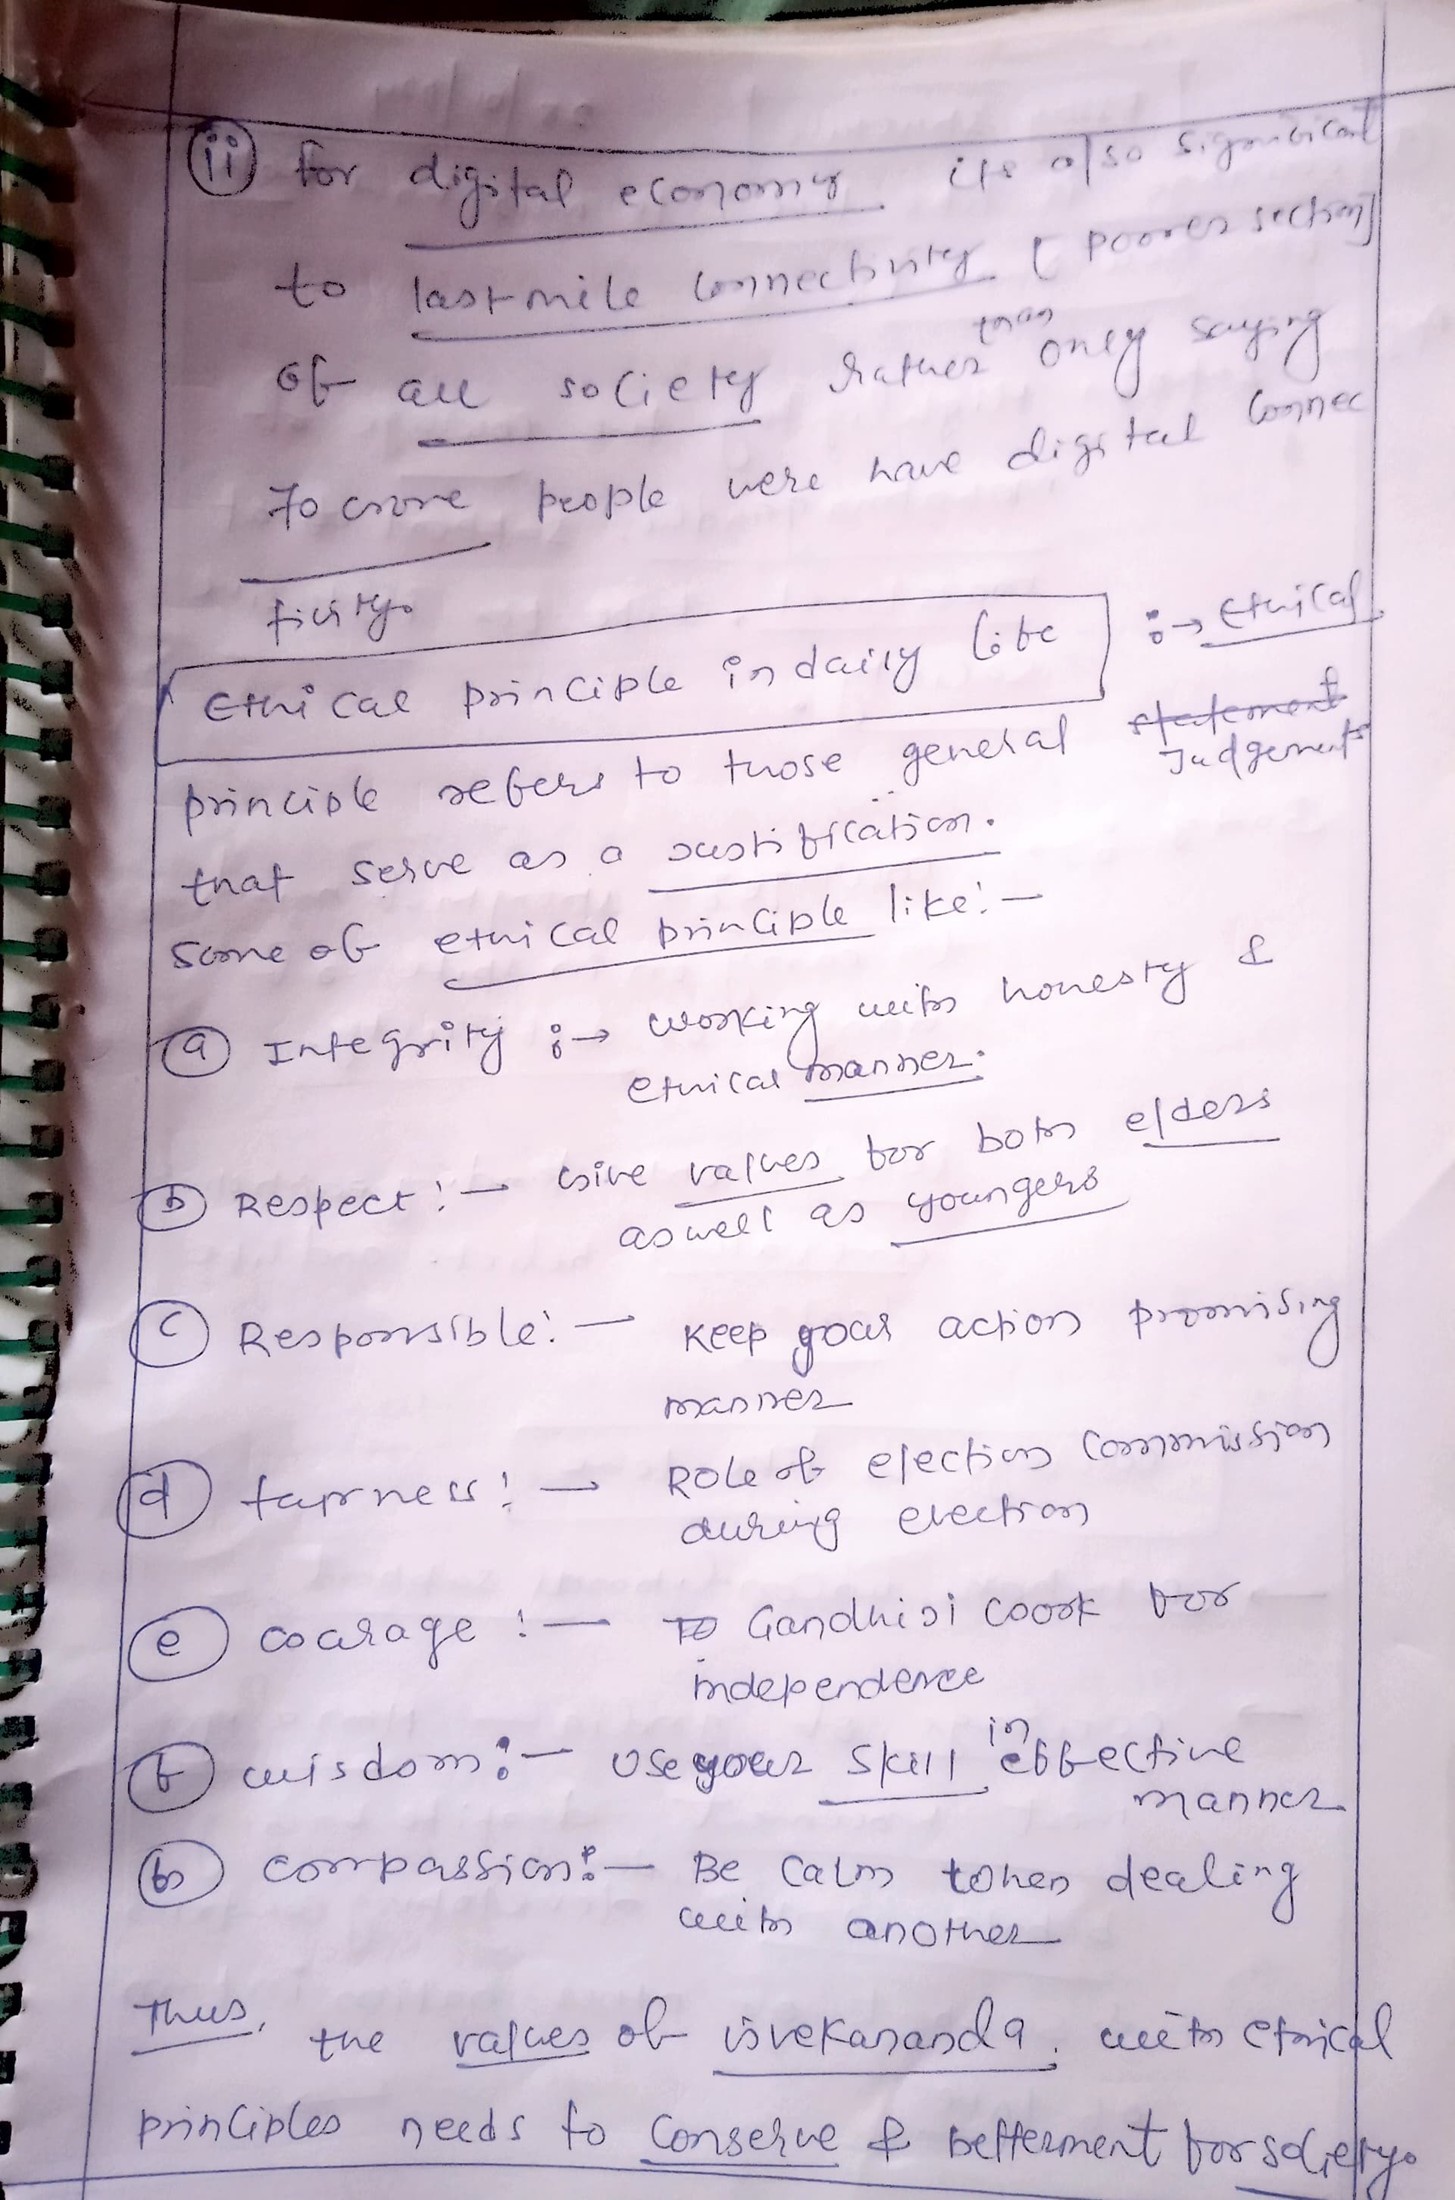 (ii) for digital economy its also significant
to last mile connectivity [poorer section]
of all society rather than only saying
70 crore people were have digital connec
tivity.
Ethical principle in daily life :→ ethical
principle refers to those general statement Judgements
that serve as a justification.
Some of ethical principle like:-
(a) Integrity :→ working with honesty &
ethical manner.
(b) Respect:- Give values for both elders
aswell as youngers
(c) Responsible:- Keep your action promising
manner
(d) fairness:- Role of election commission
during election
(e) courage :- To Gandhiji for
independence
(f) wisdom:- Use your skill in effective
manner
compassion:- Be calm dealing
with another
Thus, the values of vivekananda. with ethical
principles needs to conserve & betterment for society.